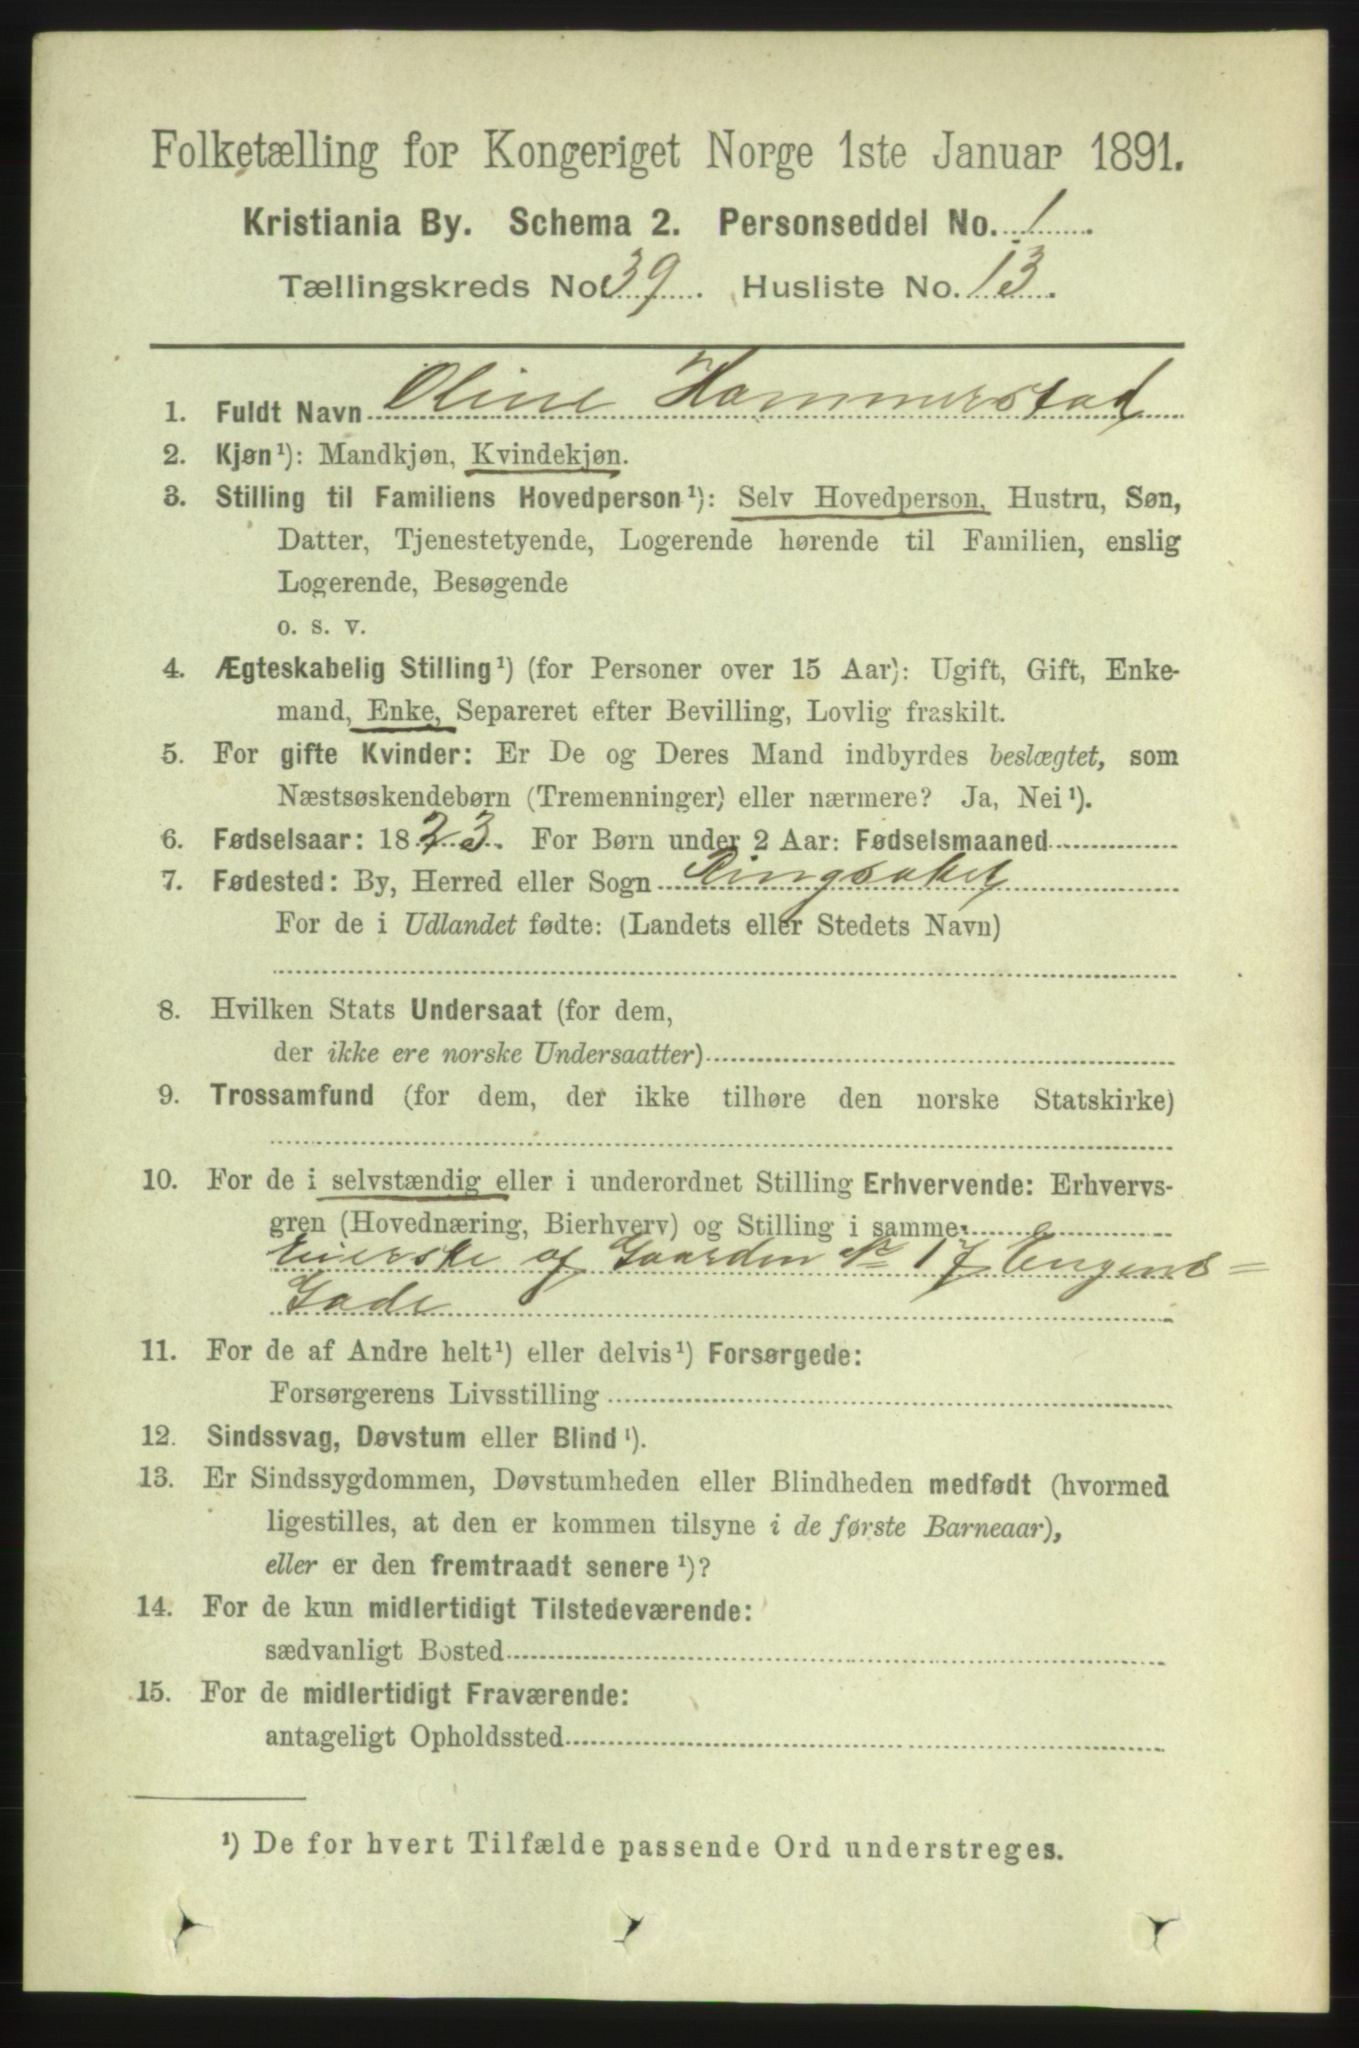 Folketælling for Kongeriget Norge 1ste Januar 1891.
Kristiania By. Schema 2. Personseddel No. 1
Tællingskreds No. 39. Husliste No. 13.
1. Fuldt Navn Oline Hammerstad
2. Kjøn¹): Mandkjøn, Kvindekjøn.
3. Stilling til Familiens Hovedperson¹): Selv Hovedperson, Hustru, Søn,
Datter, Tjenestetyende, Logerende hørende til Familien, enslig
Logerende, Besøgende
o. s. v.
4. Ægteskabelig Stilling¹) (for Personer over 15 Aar): Ugift, Gift, Enke-
mand, Enke, Separeret efter Bevilling, Lovlig fraskilt.
5. For gifte Kvinder: Er De og Deres Mand indbyrdes beslægtet, som
Næstsøskendebørn (Tremenninger) eller nærmere? Ja, Nei¹).
6. Fødselsaar: 1823. For Børn under 2 Aar: Fødselsmaaned
7. Fødested: By, Herred eller Sogn Ringsaker
For de i Udlandet fødte: (Landets eller Stedets Navn)
8. Hvilken Stats Undersaat (for dem,
der ikke ere norske Undersaatter)
9. Trossamfund (for dem, der ikke tilhøre den norske Statskirke)
10. For de i selvstændig eller i underordnet Stilling Erhvervende: Erhvervs-
gren (Hovednæring, Bierhverv) og Stilling i samme:
Eierske af Gaarden No 17 Eugens=
Gade
11. For de af Andre helt¹) eller delvis¹) Forsørgede:
Forsørgerens Livsstilling
12. Sindssvag, Døvstum eller Blind¹).
13. Er Sindssygdommen, Døvstumheden eller Blindheden medfødt (hvormed
ligestilles, at den er kommen tilsyne i de første Barneaar),
eller er den fremtraadt senere¹)?
14. For de kun midlertidigt Tilstedeværende:
sædvanligt Bosted
15. For de midlertidigt Fraværende:
antageligt Opholdssted
¹) De for hvert Tilfælde passende Ord understreges.